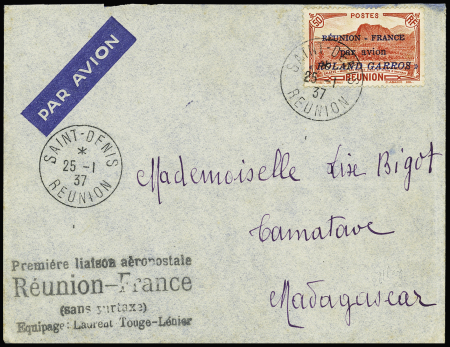 PAR AVION
50 POSTES RF
RÉUNION - FRANCE
par avion
ROLAND GARROS
REUNION
SAINT-DENIS
25 -1
37
REUNION
SAINT-DENIS
*
25 -1
37
REUNION
Mademoiselle Lise Bigot
Tamatave
Madagascar
Première liaison aéropostale
Réunion-France
(sans surtaxe)
Equipage: Laurent Touge-Lénier